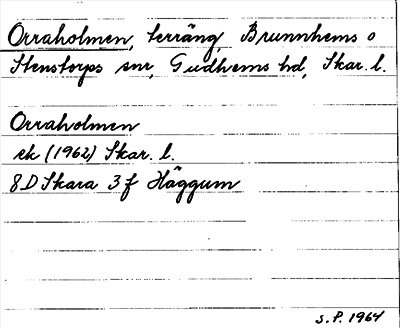 Orraholmen, terräng Brunnhems o
Stenstorps snr, Gudhems hd, Skar. l.
Orraholmen
ek (1962) Skar. l.
8D Skara 3f Häggum
S.P. 1964